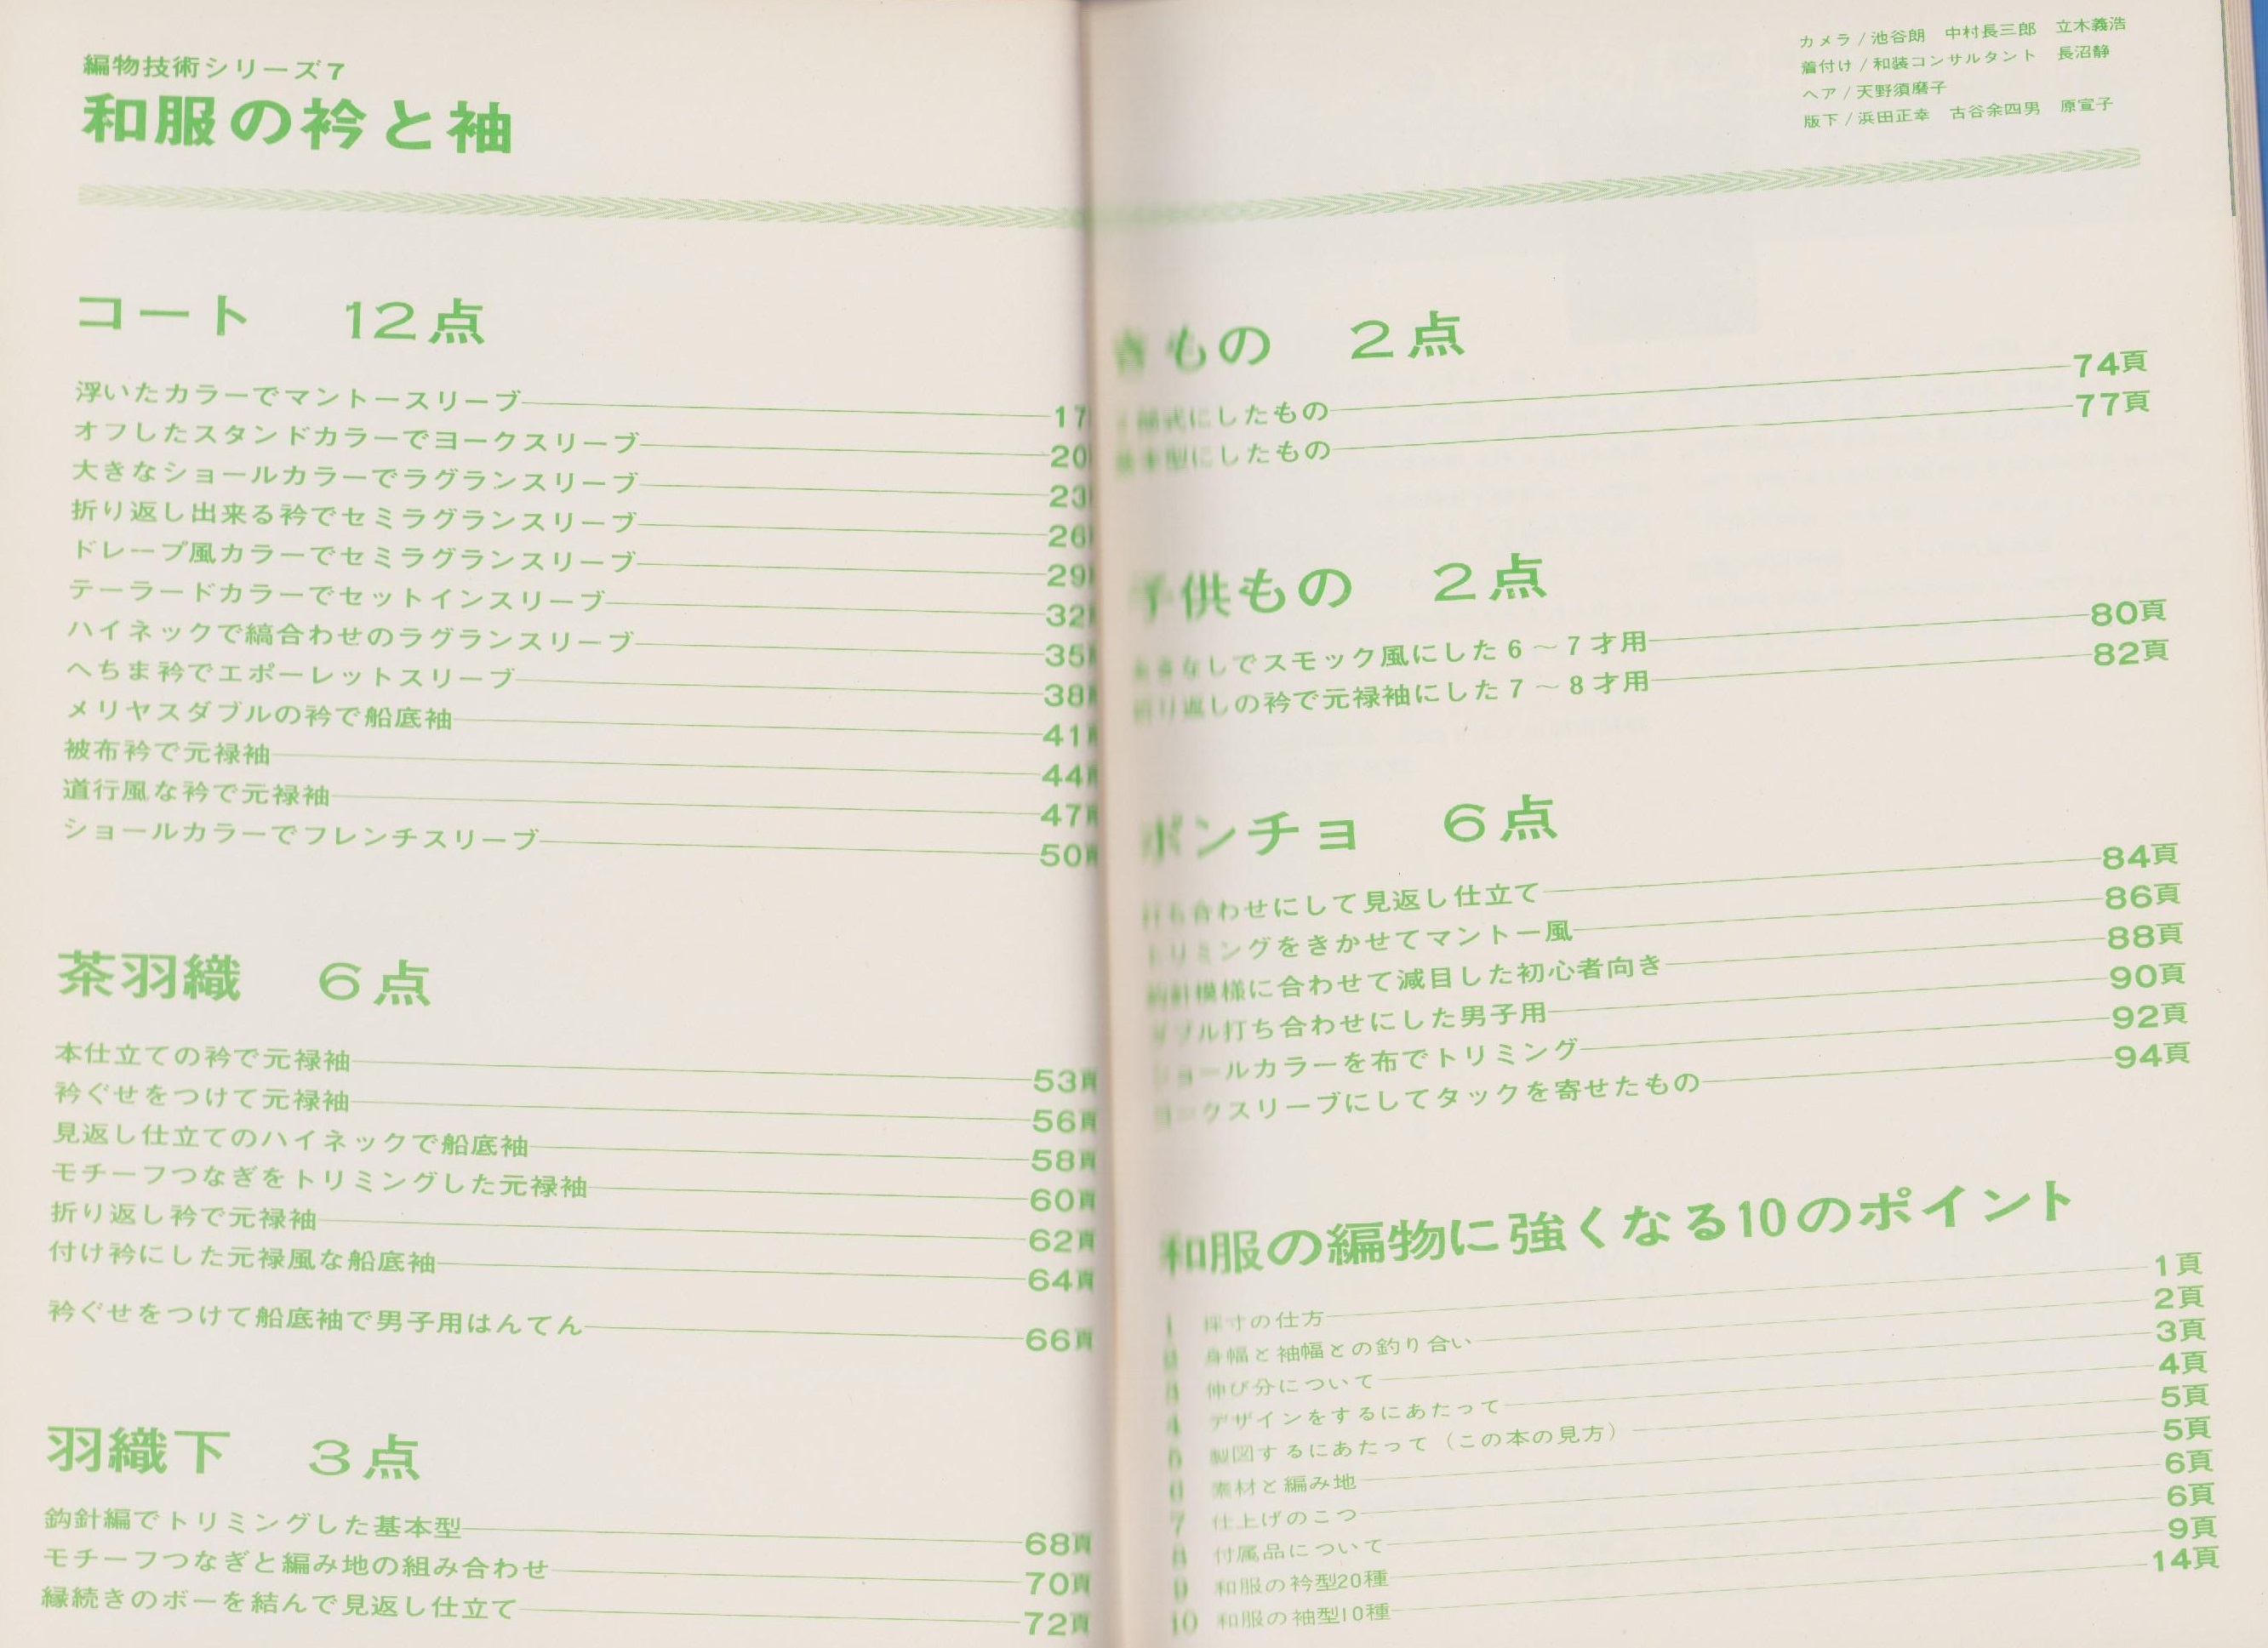 編物技術シリーズ7
和服の衿と袖
コート 12点
浮いたカラーでマントースリーブ 17
オフしたスタンドカラーでヨークスリーブ 20
大きなショールカラーでラグランスリーブ 23
折り返し出来る衿でセミラグランスリーブ 26
ドレープ風カラーでセミラグランスリーブ 29
テーラードカラーでセットインスリーブ 32
ハイネックで縞合わせのラグランスリーブ 35
へちま衿でエポーレットスリーブ 38
メリヤスダブルの衿で船底袖 41
被布衿で元禄袖 44
道行風な衿で元禄袖 47
ショールカラーでフレンチスリーブ 50
茶羽織 6点
本仕立ての衿で元禄袖 53頁
衿ぐせをつけて元禄袖 56頁
見返し仕立てのハイネックで船底袖 58頁
モチーフつなぎをトリミングした元禄袖 60頁
折り返し衿で元禄袖 62頁
付け衿にした元禄風な船底袖 64頁
衿ぐせをつけて船底袖で男子用はんてん 66頁
羽織下 3点
鈎針編でトリミングした基本型 68頁
モチーフつなぎと編み地の組み合わせ 70頁
縁続きのボーを結んで見返し仕立て 72頁
カメラ/池谷朗 中村長三郎 立木義浩
着付け/和装コンサルタント 長沼静
ヘア/天野須磨子
版下/浜田正幸 古谷余四男 原宣子
きもの 2点
式にしたもの 74頁
型にしたもの 77頁
子供もの 2点
なしでスモック風にした6〜7才用 80頁
折り返しの衿で元禄袖にした7〜8才用 82頁
ポンチョ 6点
打ち合わせにして見返し仕立て 84頁
トリミングをきかせてマントー風 86頁
鈎針模様に合わせて減目した初心者向き 88頁
ダブル打ち合わせにした男子用 90頁
ショールカラーを布でトリミング 92頁
ヨークスリーブにしてタックを寄せたもの 94頁
和服の編物に強くなる10のポイント
1 採寸の仕方 1頁
2 身幅と袖幅との釣り合い 2頁
3 伸び分について 3頁
4 デザインをするにあたって 4頁
5 製図するにあたって（この本の見方） 5頁
6 素材と編み地 5頁
7 仕上げのこつ 6頁
8 付属品について 6頁
9 和服の衿型20種 9頁
10 和服の袖型10種 14頁